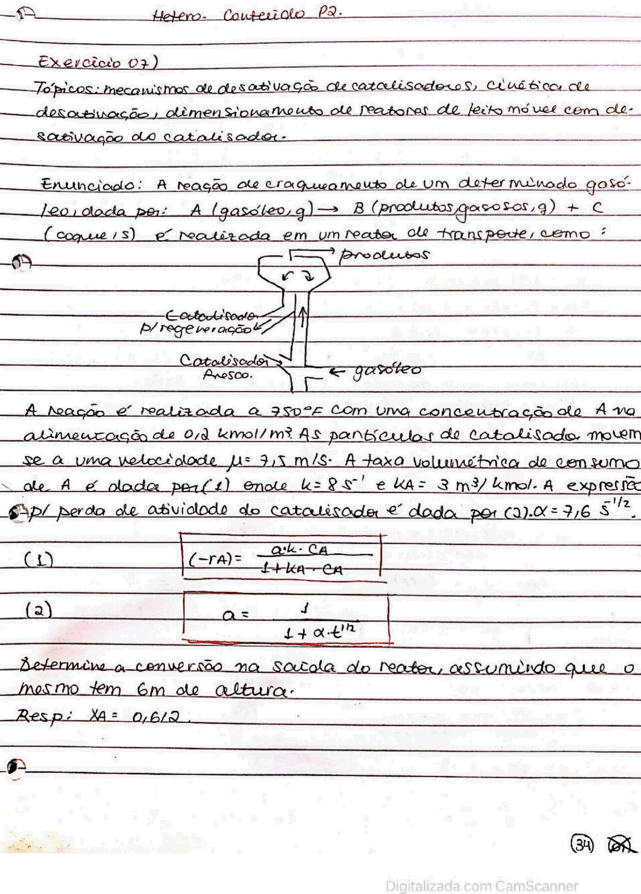 Hetero. Conteúdo P2.
Exercício 07)
Tópicos: mecanismos de desativação de catalisadores, cinética de
desativação, dimensionamento de reatores de leito móvel com de-
sativação do catalisador.
Enunciado: A reação de craqueamento de um determinado gasó-
leo, dada por: A (gasóleo, g) → B (produtos gasosos, g) + C
(coque, s) é realizada em um reator de transporte, como:
produtos
Catalisador
p/ regeneração
Catalisador
fresco.
gasóleo
A reação é realizada a 750°F com uma concentração de A na
alimentação de 0,2 kmol/m³. As partículas de catalisador movem
se a uma velocidade μ= 7,5 m/s. A taxa volumétrica de consumo
de A é dada por (1) onde k= 8 s⁻¹ e kA= 3 m³/kmol. A expressão
p/ perda de atividade do catalisador é dada por (2). α= 7,6 s⁻¹/².
(1) (-rA)= a·k·CA / 1+kA·CA
(2) a= 1 / 1+α·t¹/²
Determine a conversão na saída do reator, assumindo que o
mesmo tem 6m de altura.
Resp: XA= 0,612.
34
Digitalizada com CamScanner